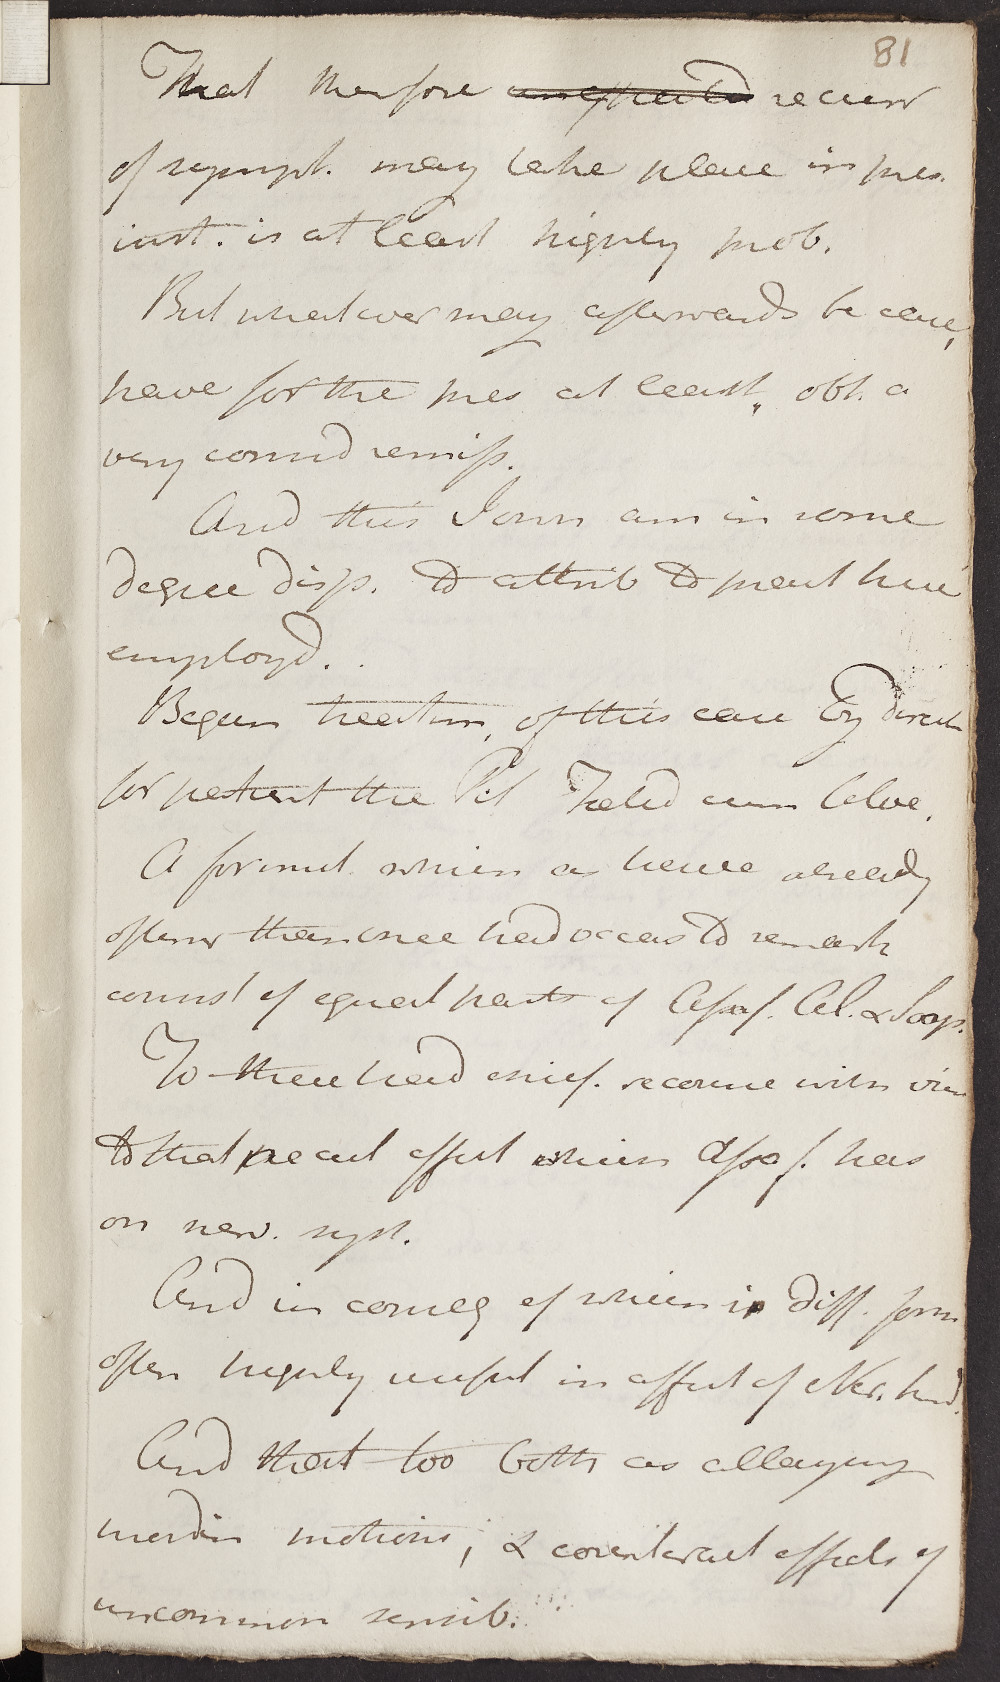 81
That therefore unexpected recurr
of sympt. may take place in pres.
inst. is at least highly prob.
But whatever may afterwards be case,
have for the pres at least, obt. a
very consid remiss.
And this I own am in some
degree disp. to attrib to pract here
employd.
Begun treatm, of this case by direct
for patient the Pil Foetid cum Aloe.
A formul. which as have already
oftener than once had occas to remark
consist of equal parts of Assaf. Al. & Soap.
To these had chief. recourse with view
to that pecul effect which Assaf. has
on nerv. syst.
And in conseq of which in diff. form
often highly useful in affect of Ner. kind.
And that too both as allaying
inordin motions, & counteract effects of
uncommon sensib.